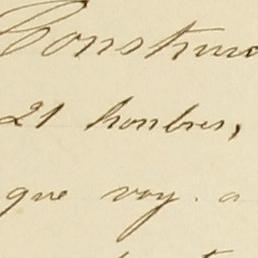 Construc
21 honbres,
que voy. a